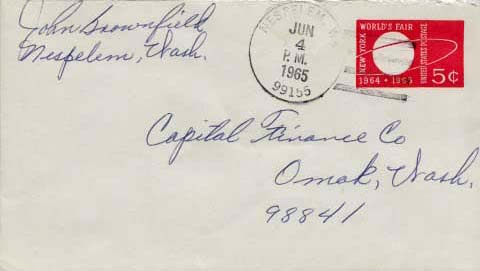 John Brownfield
Nespelem, Wash.
NESPELEM, W
JUN
4
P. M.
1965
99155
NEW YORK
WORLD'S FAIR
UNITED STATES POSTAGE
1964 • 1965
5¢
Capital Finance Co
Omak, Wash.
98841